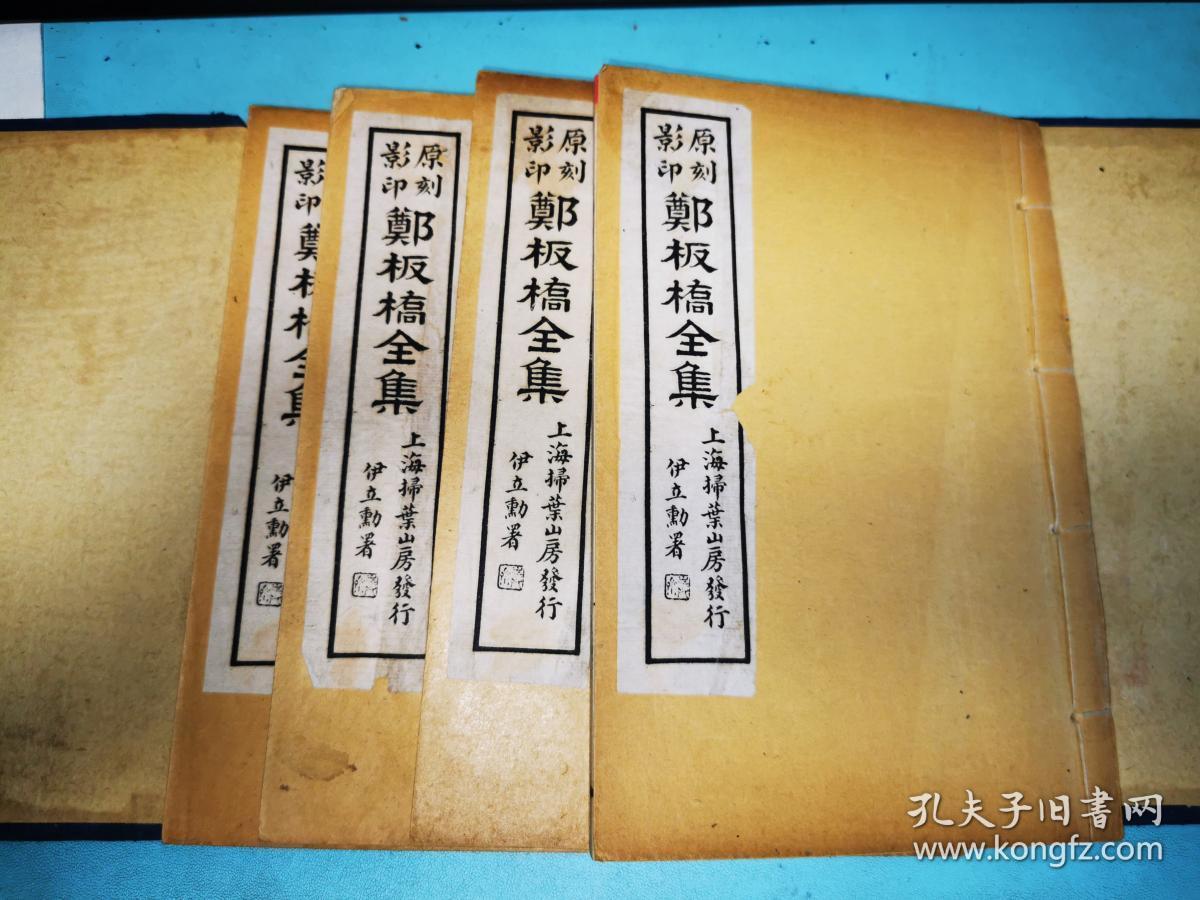 原刻
影印
鄭板橋全集
上海掃葉山房發行
伊立勳署
原刻
影印
鄭板橋全集
上海掃葉山房發行
伊立勳署
原刻
影印
鄭板橋全集
上海掃葉山房發行
伊立勳署
影印
鄭板橋全集
伊立勳署
孔夫子旧书网
www.kongfz.com